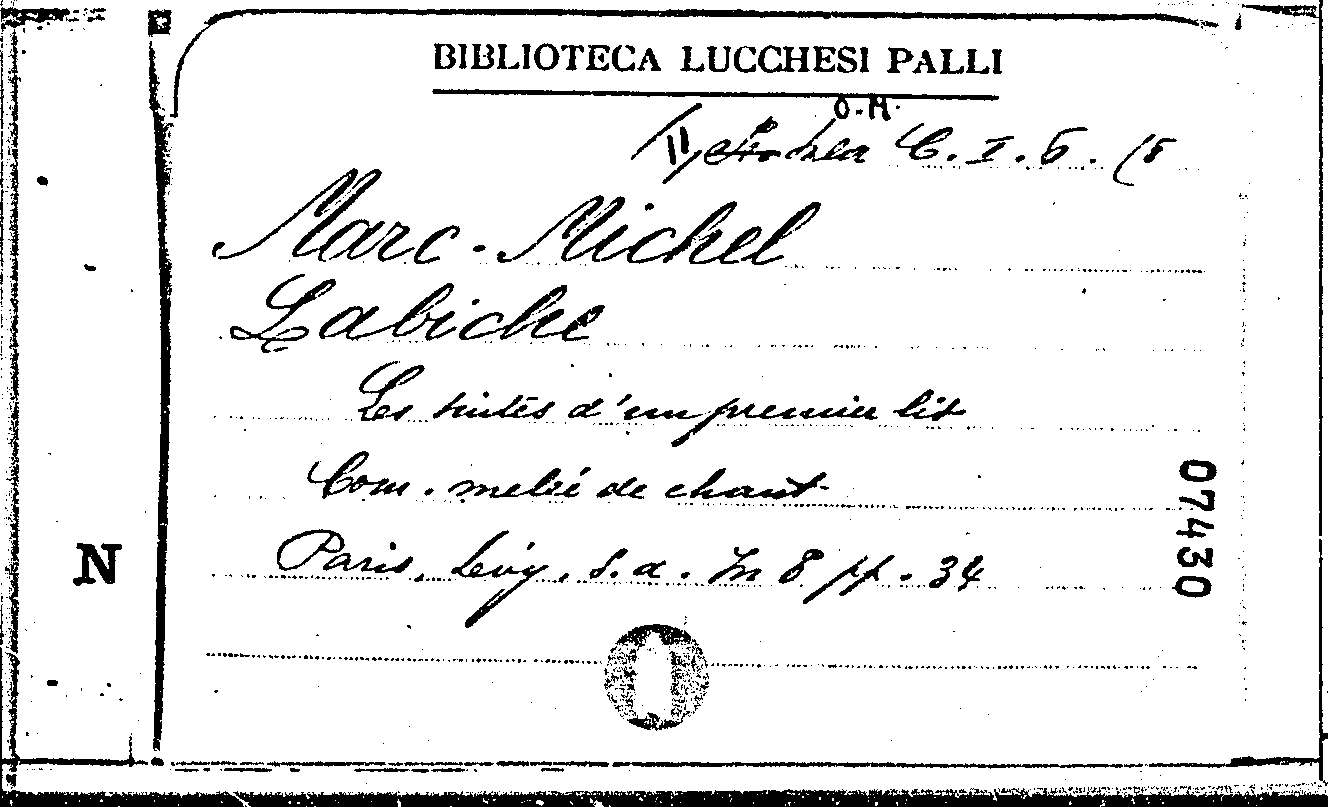 BIBLIOTECA LUCCHESI PALLI
O.M.
C. I. 6. (8
Marc-Michel
Labiche
Les suites d'un premier lit
Com. melée de chant
Paris, Lévy, s.a. In 8 pp. 34
N
07430